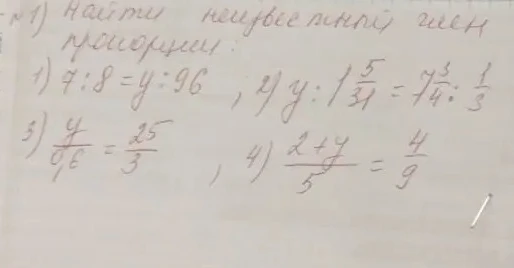 №1) Найти неизвестный член
пропорции:
1) 7 : 8 = y : 96 , 2) y : 1 5/31 = 7 3/4 : 1/3
3) y/0,6 = 25/3 , 4) (2+y)/5 = 4/9